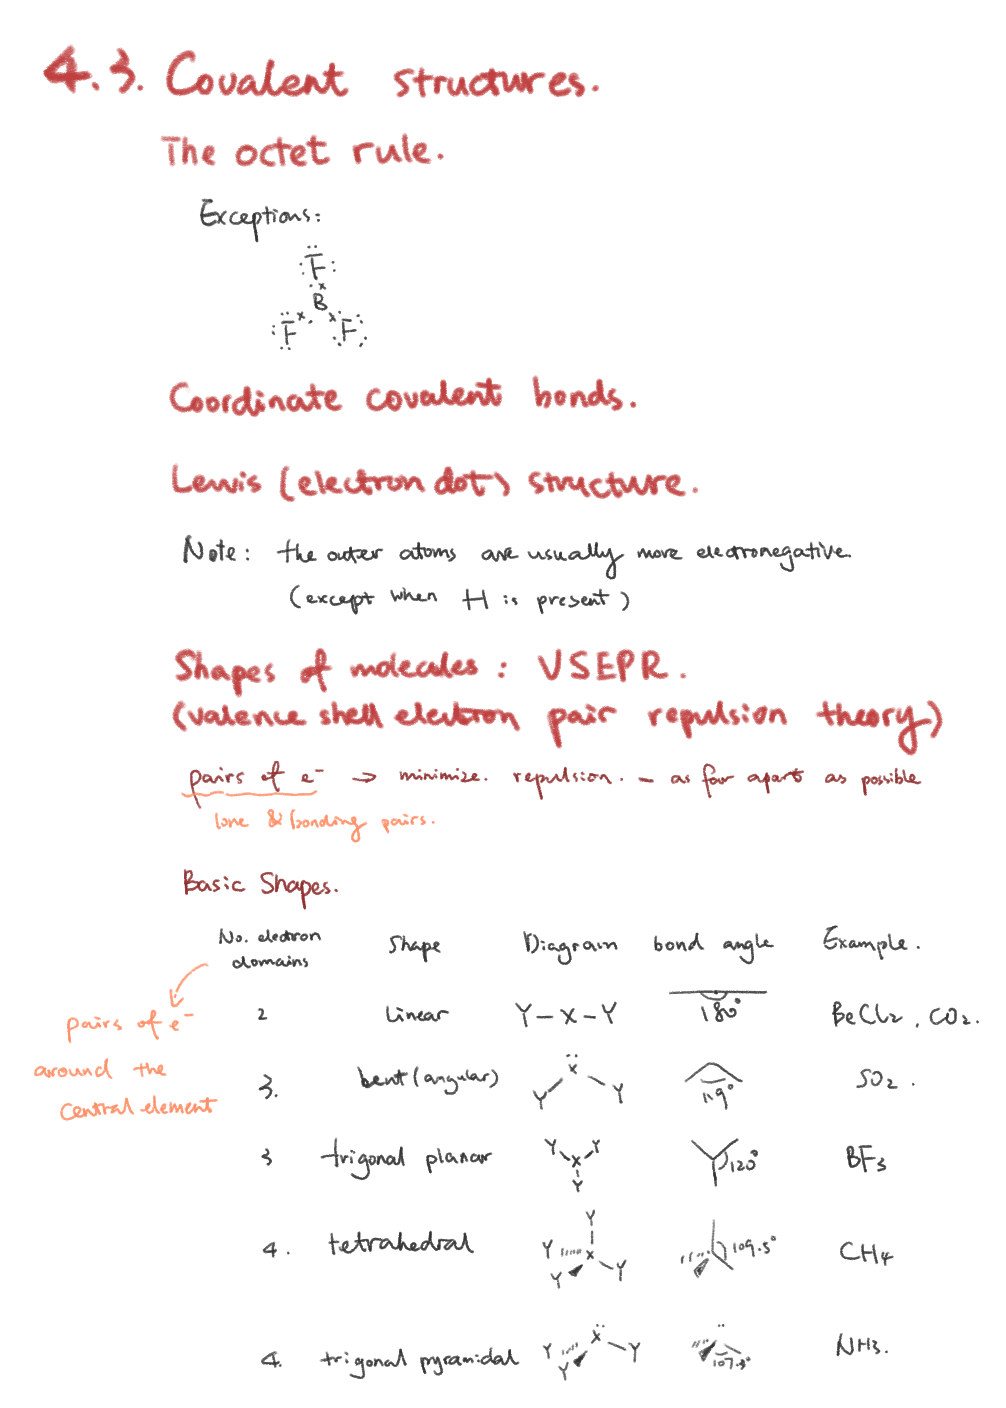 4.3. Covalent structures.
The octet rule.
Exceptions:
F
B
F F
Coordinate covalent bonds.
Lewis (electron dot) structure.
Note: the outer atoms are usually more electronegative.
(except when H is present)
Shapes of molecules: VSEPR.
(valence shell electron pair repulsion theory)
pairs of e⁻ → minimize. repulsion. – as far apart as possible
lone & bonding pairs.
Basic Shapes.
No. electron domains Shape Diagram bond angle Example.
pairs of e⁻
around the
central element
2 Linear Y – X – Y 180° BeCl₂, CO₂.
3. bent (angular) Y X Y 119° SO₂.
3 trigonal planar Y Y X Y 120° BF₃
4. tetrahedral Y Y X Y Y 109.5° CH₄
4. trigonal pyramidal Y X Y Y 107.3° NH₃.